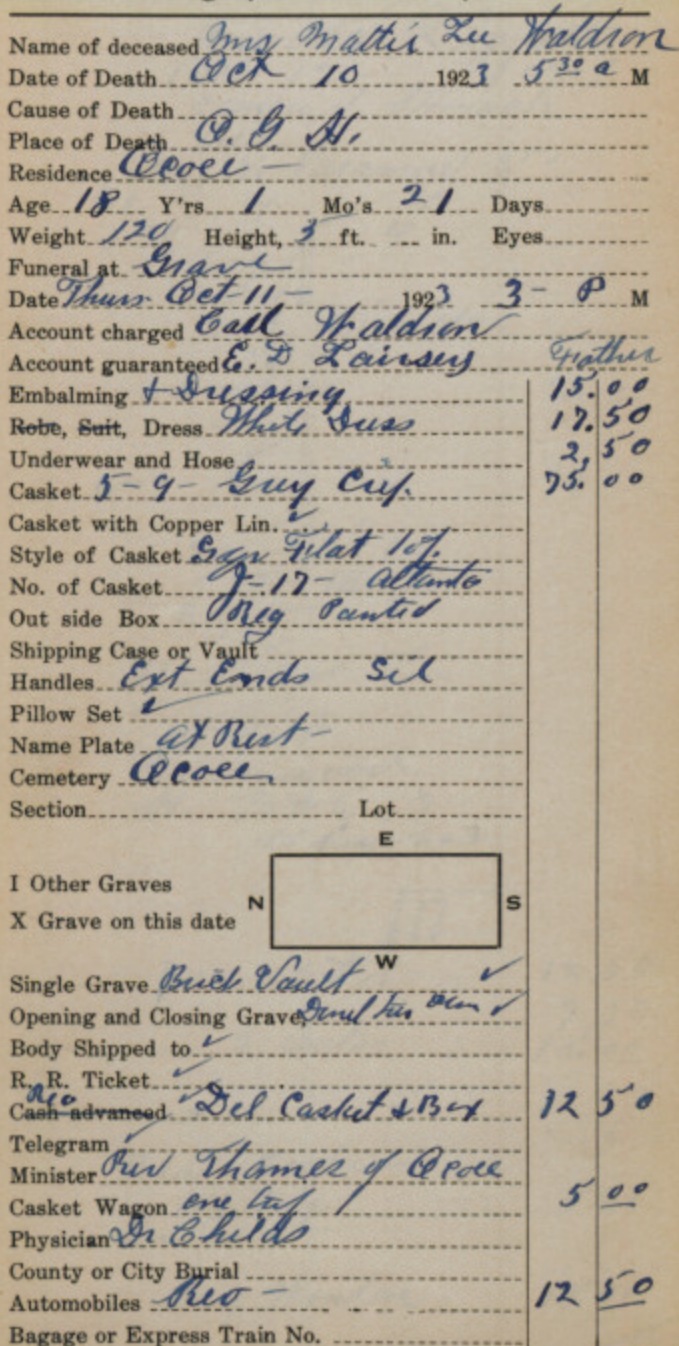 Name of deceased Mrs Mattie Lee Waldron
Date of Death Oct 10 1923 5 30 a M
Cause of Death
Place of Death O. G. H.
Residence Ocoee -
Age 18 Y'rs 1 Mo's 21 Days
Weight 120 Height, 5 ft. in. Eyes
Funeral at Grave
Date Thurs Oct 11 - 1923 3 - P M
Account charged Earl Waldron
Account guaranteed E. D Father
Embalming + Dressing 15.00
Robe, Suit, Dress White Dress 17.50
Underwear and Hose 2.50
Casket 5-9- Grey Crep. 75.00
Casket with Copper Lin. ✓
Style of Casket Flat top.
No. of Casket J-17- Atlanta
Out side Box Reg Painted
Shipping Case or Vault
Handles Ext Ends Sil
Pillow Set ✓
Name Plate At Rest -
Cemetery Ocoee
Section Lot
E
I Other Graves
N S
X Grave on this date
W
Single Grave Brick Vault ✓
Opening and Closing Grave, ✓
Body Shipped to ✓
R. R. Ticket ✓
Reo
Cash advanced ✓ Del Casket & Box 12 50
Telegram ✓
Minister Rev Thames of Ocoee
Casket Wagon one trip 5 00
Physician Dr Childs
County or City Burial
Automobiles Reo - 12 50
Bagage or Express Train No.